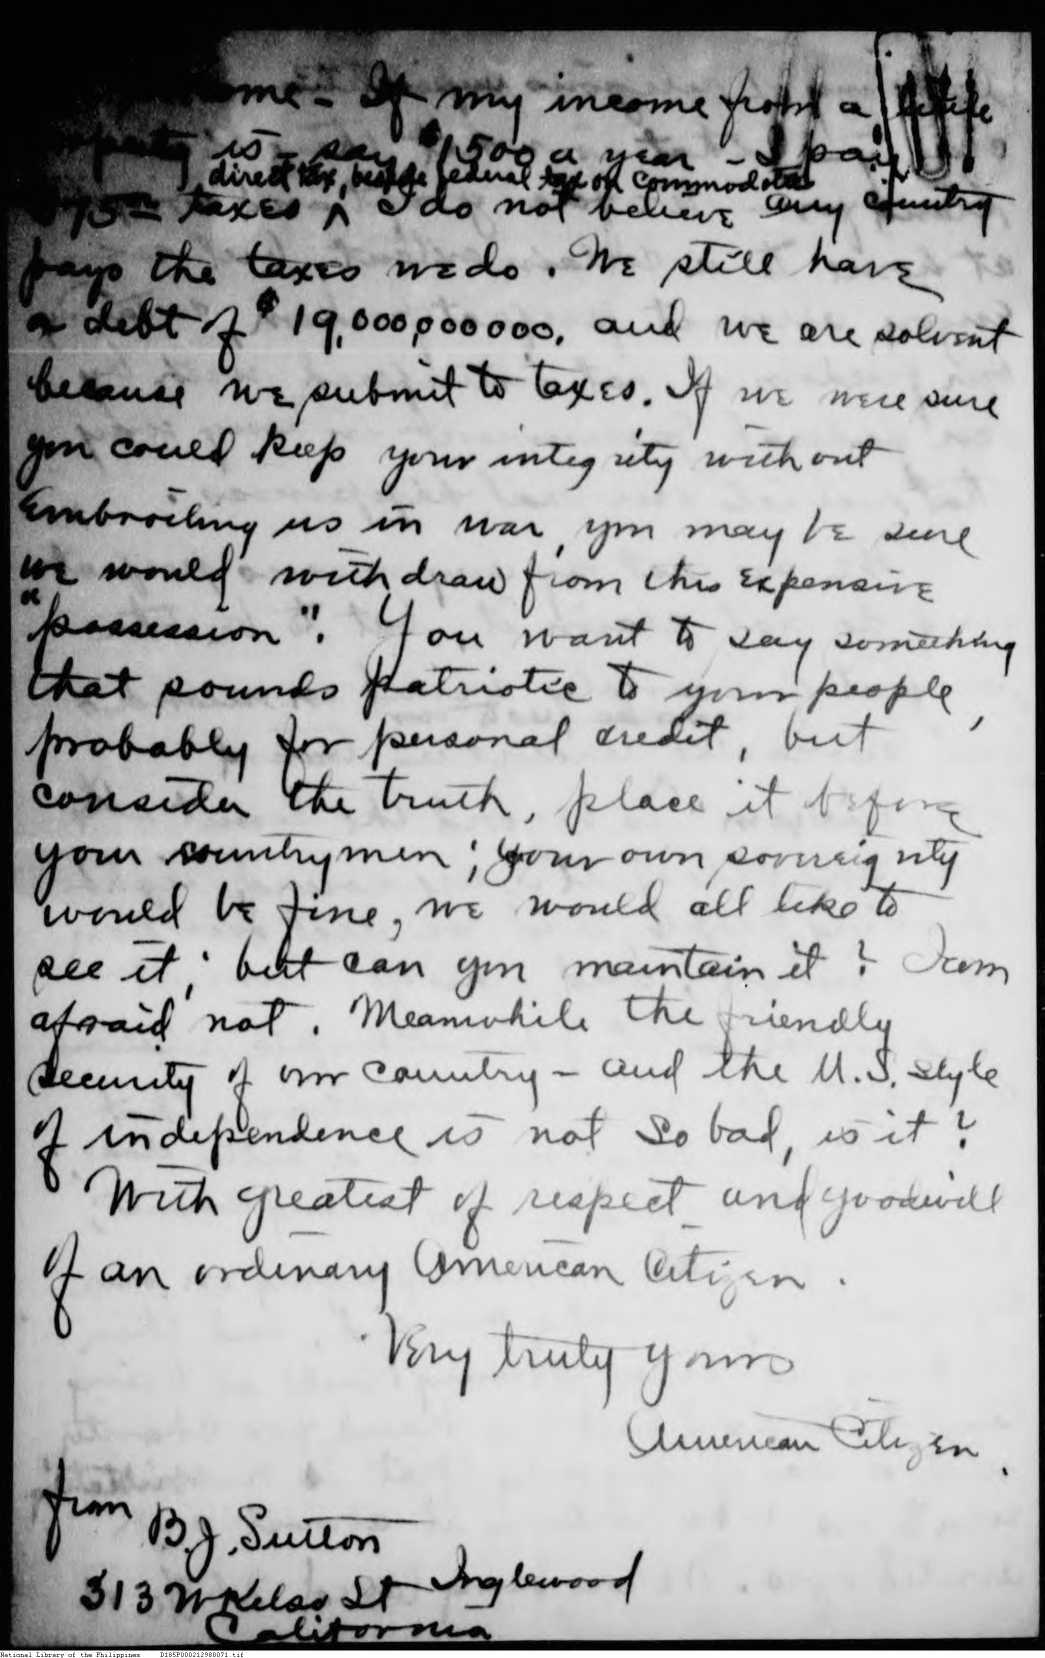 me - If my income from a little
is - say $1500 a year - I pay
direct tax, beside federal tax on commodoties
taxes ^ I do not believe any country
pays the taxes we do. We still have
a debt of $19,000,000000, and we are solvent
because we submit to taxes. If we were sure
you could keep your integrity without
embroiling us in war, you may be sure
we would withdraw from this expensive
"possession". You want to say something
that sounds patriotic to your people,
probably for personal credit, but
consider the truth, place it before
your countrymen; your own sovereignity
would be fine, we would all like to
see it; but can you maintain it? I am
afraid not. Meanwhile the friendly
security of our country - and the U.S. style
of independence is not so bad, is it?
With greatest of respect and goodwill
of an ordinary American Citizen.
Very truly yours
American Citizen.
from
B.J. Sutton
313 W Kelso St Inglewood
California
National Library of the Philippines D185P000212980071.tif